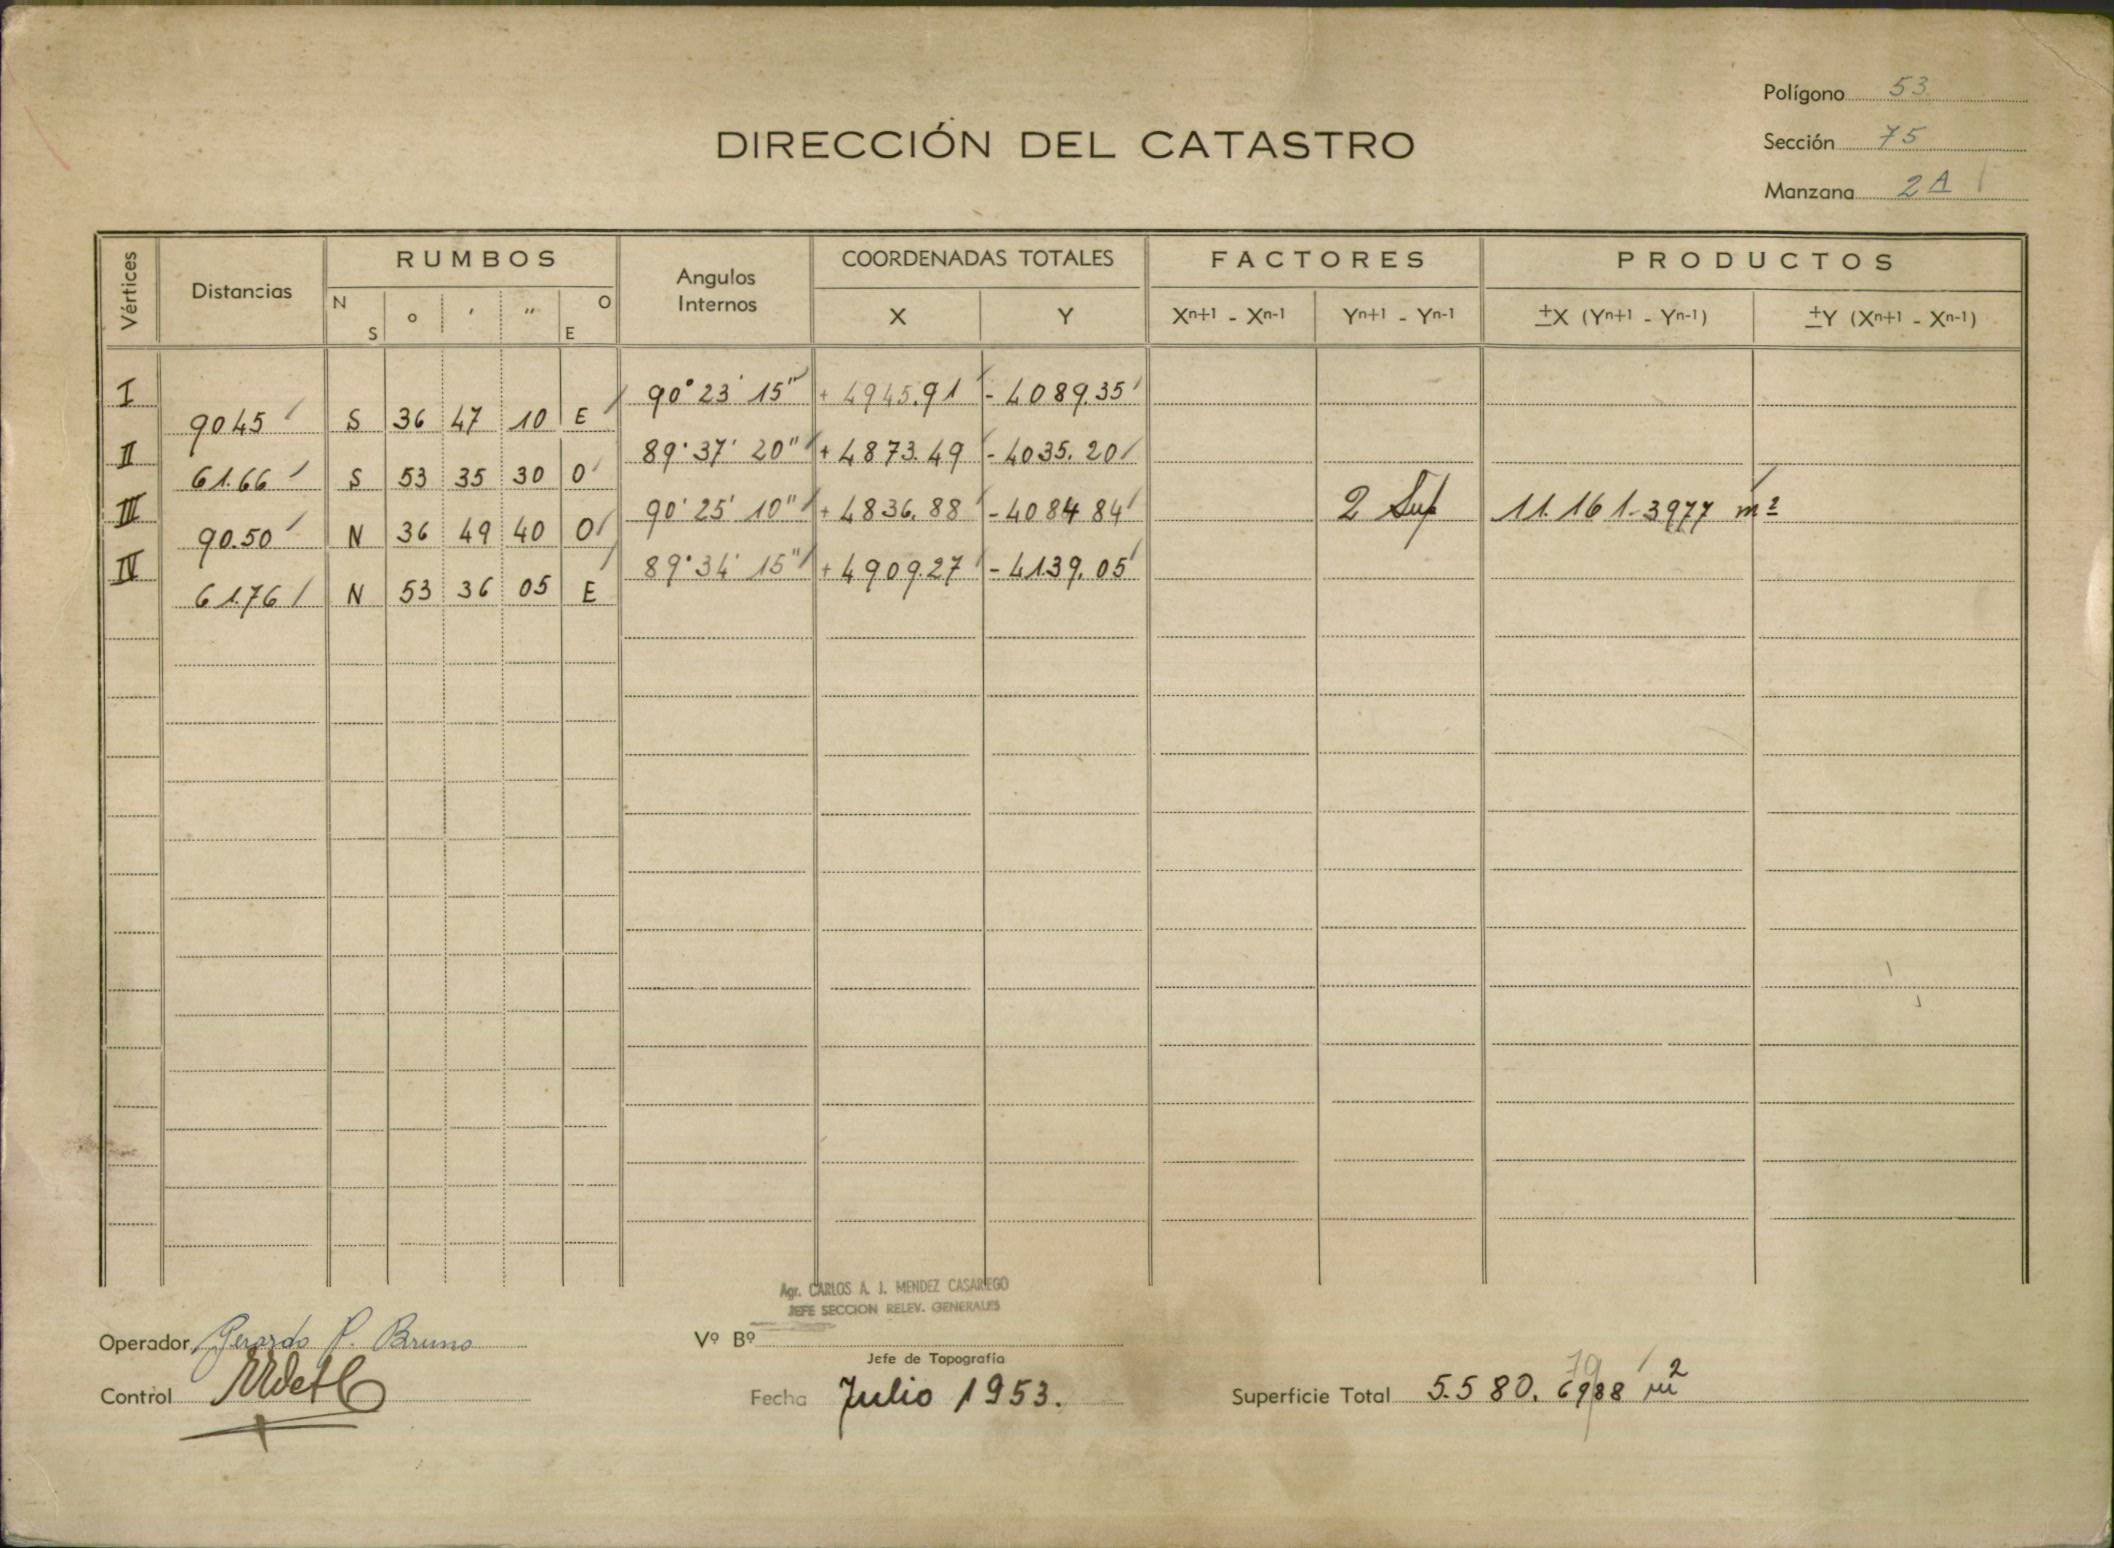 Polígono 53
DIRECCIÓN DEL CATASTRO
Sección 75
Manzana 2A
Vértices Distancias RUMBOS Angulos Internos COORDENADAS TOTALES FACTORES PRODUCTOS
N S ° ' " O E X Y Xn+1 - Xn-1 Yn+1 - Yn-1 ±X (Yn+1 - Yn-1) ±Y (Xn+1 - Xn-1)
I 90° 23' 15" + 4945.91 - 4089.35
90.45 S 36 47 10 E
II 89° 37' 20" + 4873.49 - 4035.20
61.66 S 53 35 30 O
III 90° 25' 10" + 4836.88 - 4084.84 2 Sup 11.161.3977 m²
90.50 N 36 49 40 O
IV 89° 34' 15" + 4909.27 - 4139.05
61.76 N 53 36 05 E
Agr. CARLOS A. J. MENDEZ CASARIEGO
JEFE SECCION RELEV. GENERALES
Operador Gerardo P. Bruno Vº Bº
Jefe de Topografía
Control Fecha Julio 1953. Superficie Total 5.580.6988 m²
79